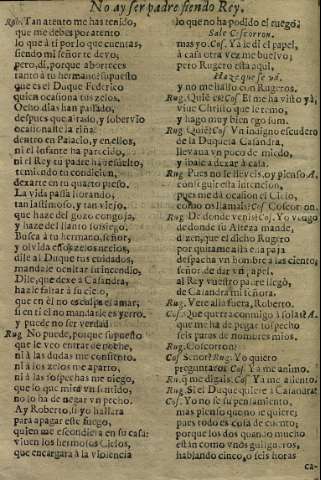 No ay ser padre siendo Rey.
Rob. Tan atento me has tenido,
que me debes por atento
lo que à ti por lo que cuentas,
siendo mi señor te devo;
pero, di, porque aborreces
tanto à tu hermano? supuesto
que es el Duque Federico
quien ocasiona tus zelos.
Ocho dias han passado,
despues que ayrado, y sobervio
ocasionaste la riña
dentro en Palacio, y en ellos,
ni el Infante ha parecido,
ni el Rey tu padre ha resuelto,
temiendo tu condicion,
dexarte en tu quarto preso.
La vida passa llorando,
tan lastimoso, y tan viejo,
que haze del gozo congoja,
y haze del llanto sossiego.
Busca à tu hermano, señor,
y olvida essos zelos necios,
dile al Duque tus cuidados,
mandale ocultar su incendio,
Dile, que dexe à Casandra,
hazle faltar à su
que en èl no es culpa el amar,
si en ti el no mandarle es yerro,
y puede no ser verdad
Rug. No puede, porque supuesto
que le veo entrar de noche,
ni à las dudas me consiento,
ni à los zelos me aparto,
ni à las sospechas me niego,
que lo que mira un sentido,
no lo ha de negar un pecho.
Ay Roberto, si yo hallara
para apagar este fuego,
quien me escondiera en su casa:
viven los hermosos Cielos,
que encargara à la violencia
lo que no ha podido el ruego;
Sale Coscorron.
mas yo. Cos. Ya le di el papel,
à casa otra vez me buelvo;
pero Rugero està aqui.
Haze que se và.
y no me hallo con Rugeros.
Rug. Quiè es? Cos. El me ha visto yà,
vive Christo que le temo,
y hago muy bien
Rug. Quiè? Cos. Un indigno escudero
de la Duquesa Casandra,
llevava un poco de miedo,
y ibale à dexar à casa.
Rug. Pues no se lleveis, oy pienso A.
conseguir esta intencion,
pues me dà ocasion el Cielo,
como os llamais? Cos. Coscorron.
Rug. De donde venis? Cos. Yo vengo
de donde su Alteza mande,
dizen, que el dicho Rugero
por quitame allà essa paja
despacha un hombre à las ciento;
señor de dar un papel,
al Rey vuestro padre llegò,
de Casandra mi señora.
Rug. Vete allà fuera, Roberto.
Cos. Que querra conmigo à solas? A.
que me ha de pegar sospecho
seis puras de nombres mios.
Rug. Coscorron?
Cos. Señor? Rug. Yo quiero
preguntaros. Cos. Ya me animo.
Ru. q̃ me digais. Cos. Ya me aliento.
Rug. Si el Duque quiere à Casandra?
Cos. Yo no sè su pensamiento,
mas pienso que no le quiere;
pues todo es cosa de cuento,
porque los dos quando mucho
estàn como unos gilgueros,
hablando cinco, ò seis horas
ca-